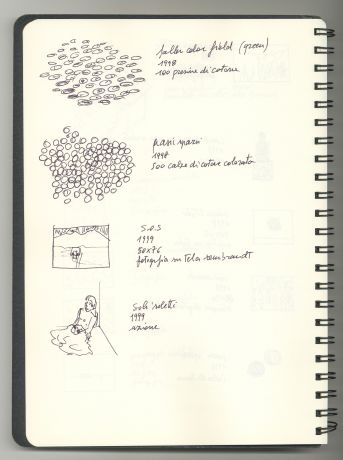 fallen color field (green)
1998
100 di cotone
1998
500 calze di cotone colorato
S.O.S
1999
50x76
fotografia su tela rembrandt
Soli soletti
1999
azione